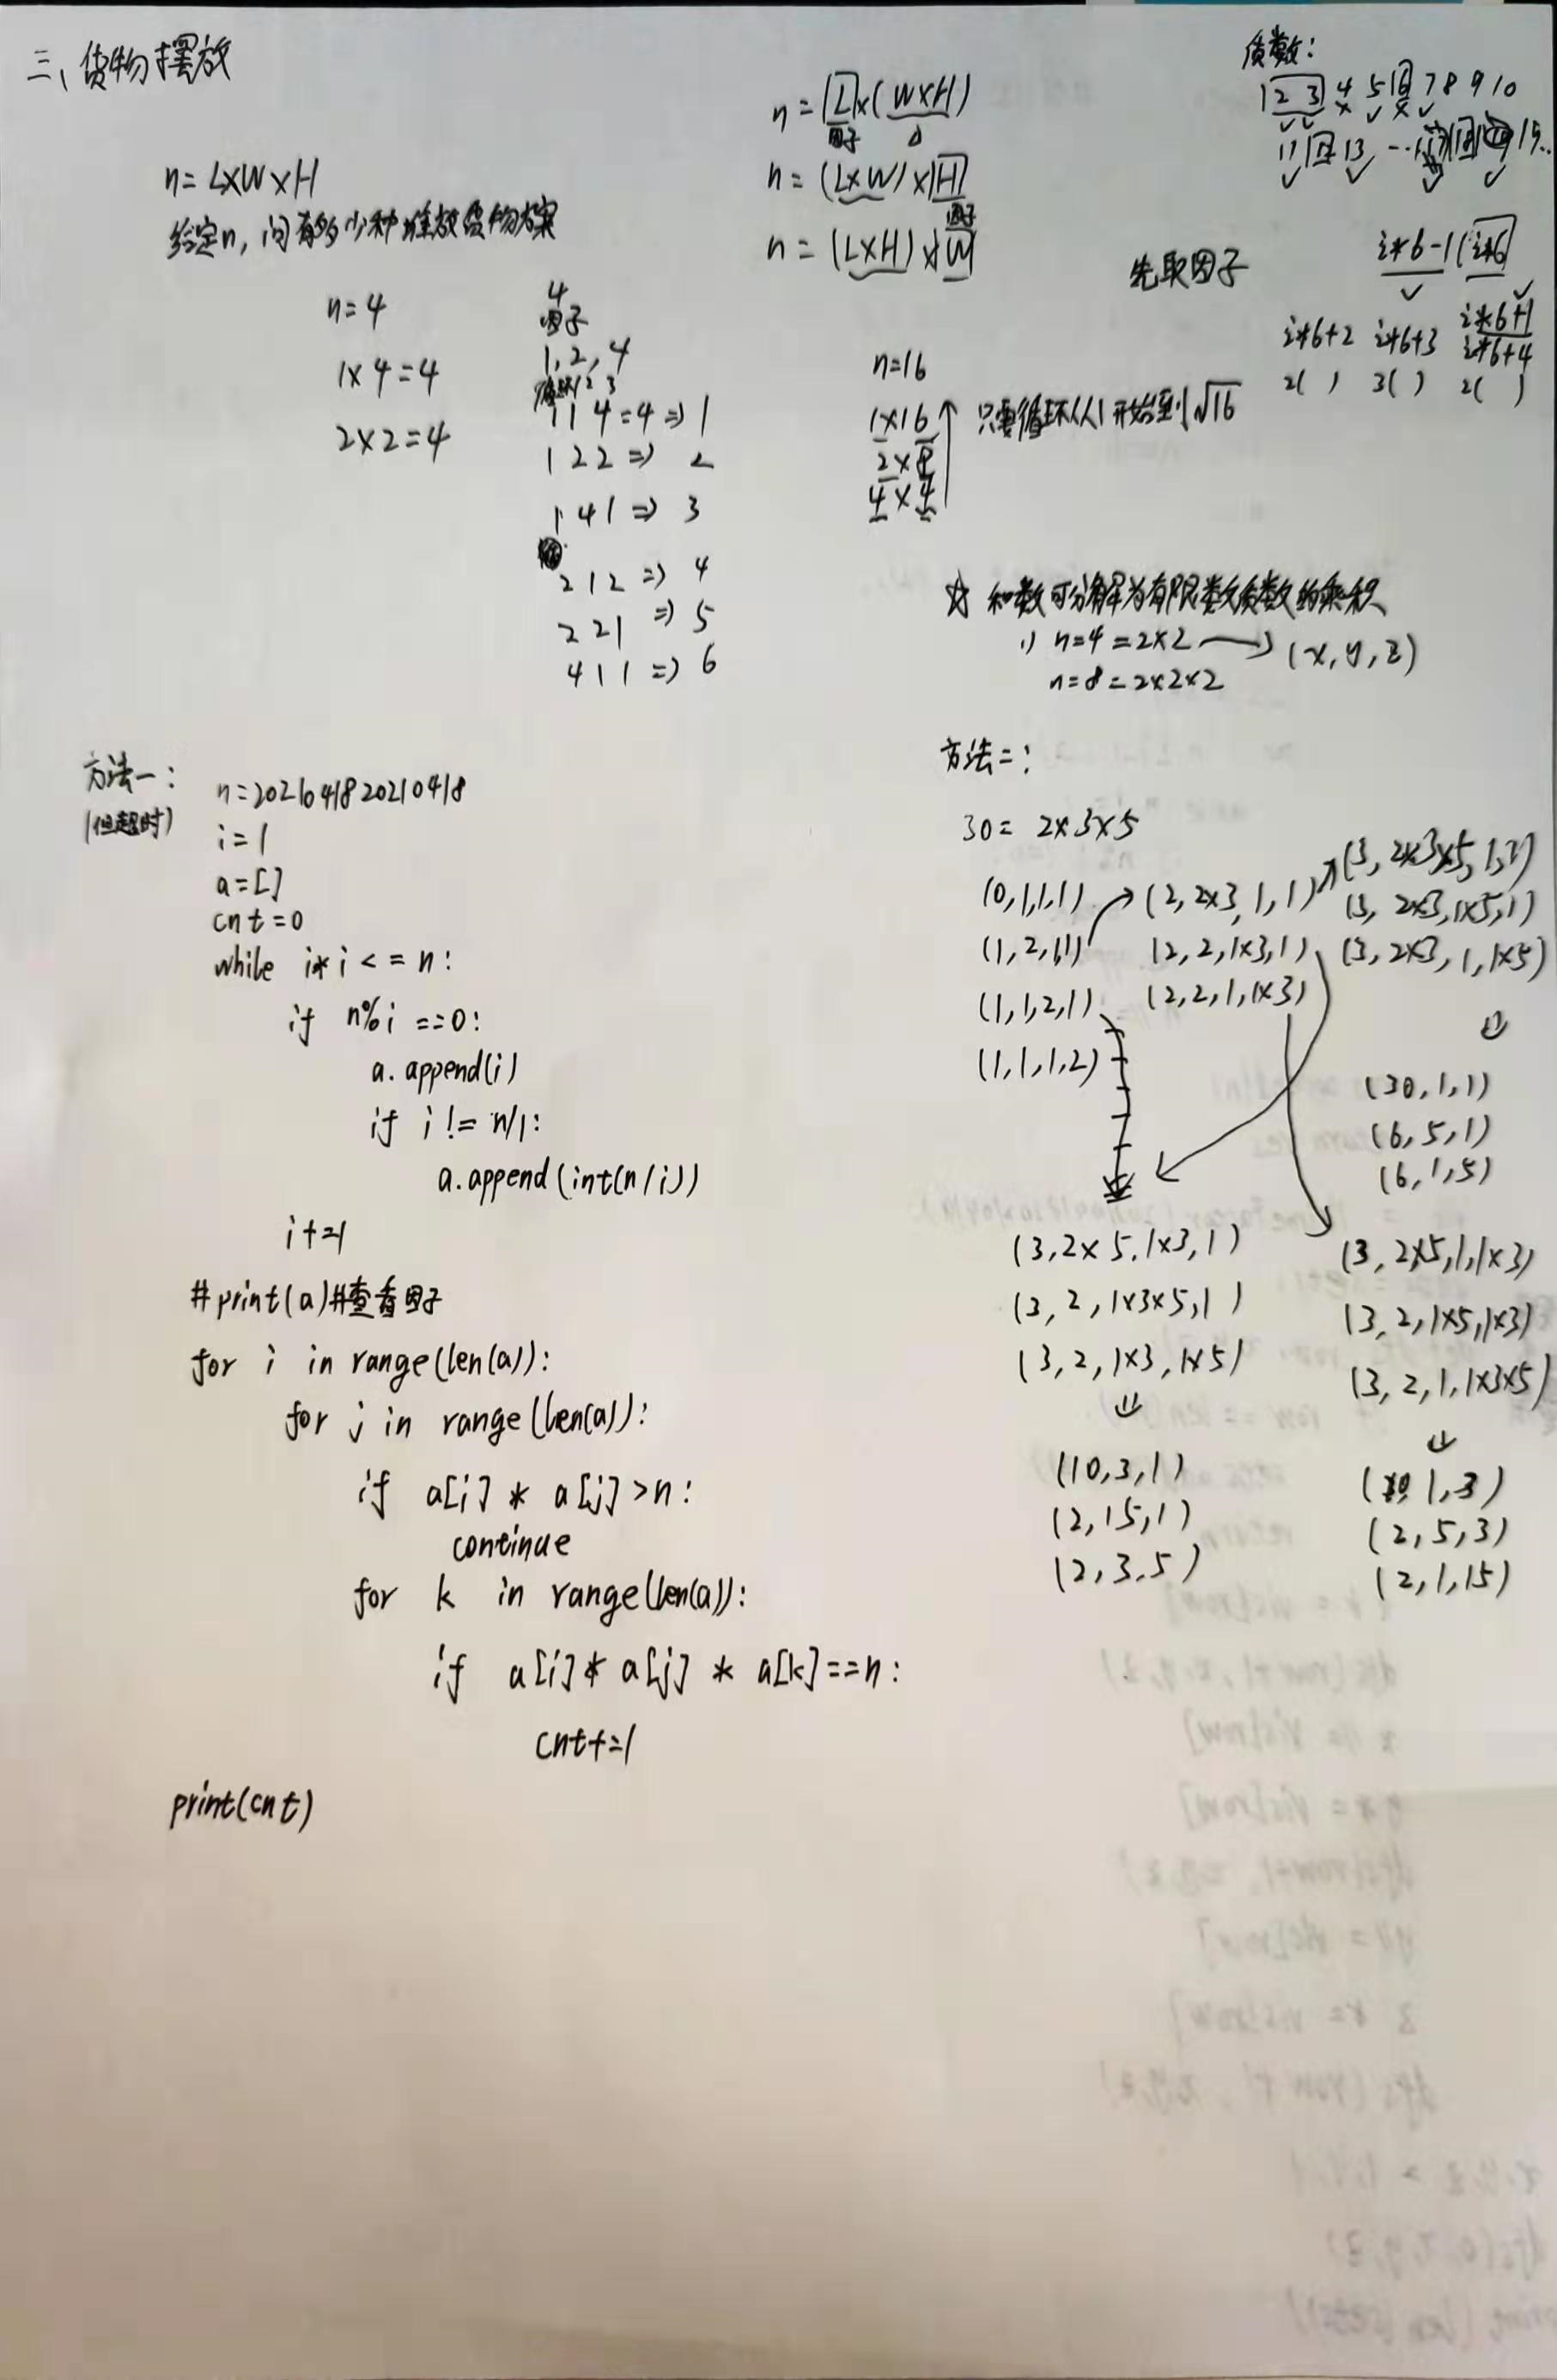 三、货物摆放
n=L×W×H
给定n,问有多少种堆放货物方案
n=4
1×4=4
2×2=4
4
因子
1,2,4
1 1 4=4⇒1
1 2 2⇒2
1 4 1⇒3
2 1 2⇒4
2 2 1⇒5
4 1 1⇒6
n=L×(W×H)
因子
n=(L×W)×H
因子
n=(L×H)×W
n=16
1×16
2×8
4×4
只要循环从1开始到√16
先取因子
质数:
1 2 3 4 5 6 7 8 9 10
11 12 13 ...
i*6-1 (i*6)
i*6+1
i*6+2 i*6+3 i*6+4
2( ) 3( ) 2( )
☆ 和数可分解为有限数质数的乘积
1) n=4=2×2→(x,y,z)
n=8=2×2×2
方法一:
(但超时)
n=2021041820210418
i=1
a=[]
cnt=0
while i*i<=n:
if n%i==0:
a.append(i)
if i!=n/i:
a.append(int(n/i))
i+=1
#print(a)#查看因子
for i in range(len(a)):
for j in range(len(a)):
if a[i]*a[j]>n:
continue
for k in range(len(a)):
if a[i]*a[j]*a[k]==n:
cnt+=1
print(cnt)
方法二:
30=2×3×5
(0,1,1,1)
(1,2,1,1)
(1,1,2,1)
(1,1,1,2)
(2,2×3,1,1)
(2,2,1×3,1)
(2,2,1,1×3)
(3,2×3×5,1,1)
(3,2×3,1×5,1)
(3,2×3,1,1×5)
⇓
(30,1,1)
(6,5,1)
(6,1,5)
(3,2×5,1×3,1)
(3,2,1×3×5,1)
(3,2,1×3,1×5)
⇓
(10,3,1)
(2,15,1)
(2,3,5)
(3,2×5,1,1×3)
(3,2,1×5,1×3)
(3,2,1,1×3×5)
⇓
(10,1,3)
(2,5,3)
(2,1,15)